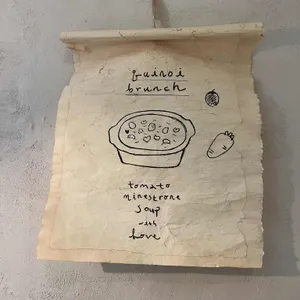 guinoi
brunch
tomato
minestrone
soup
with
love